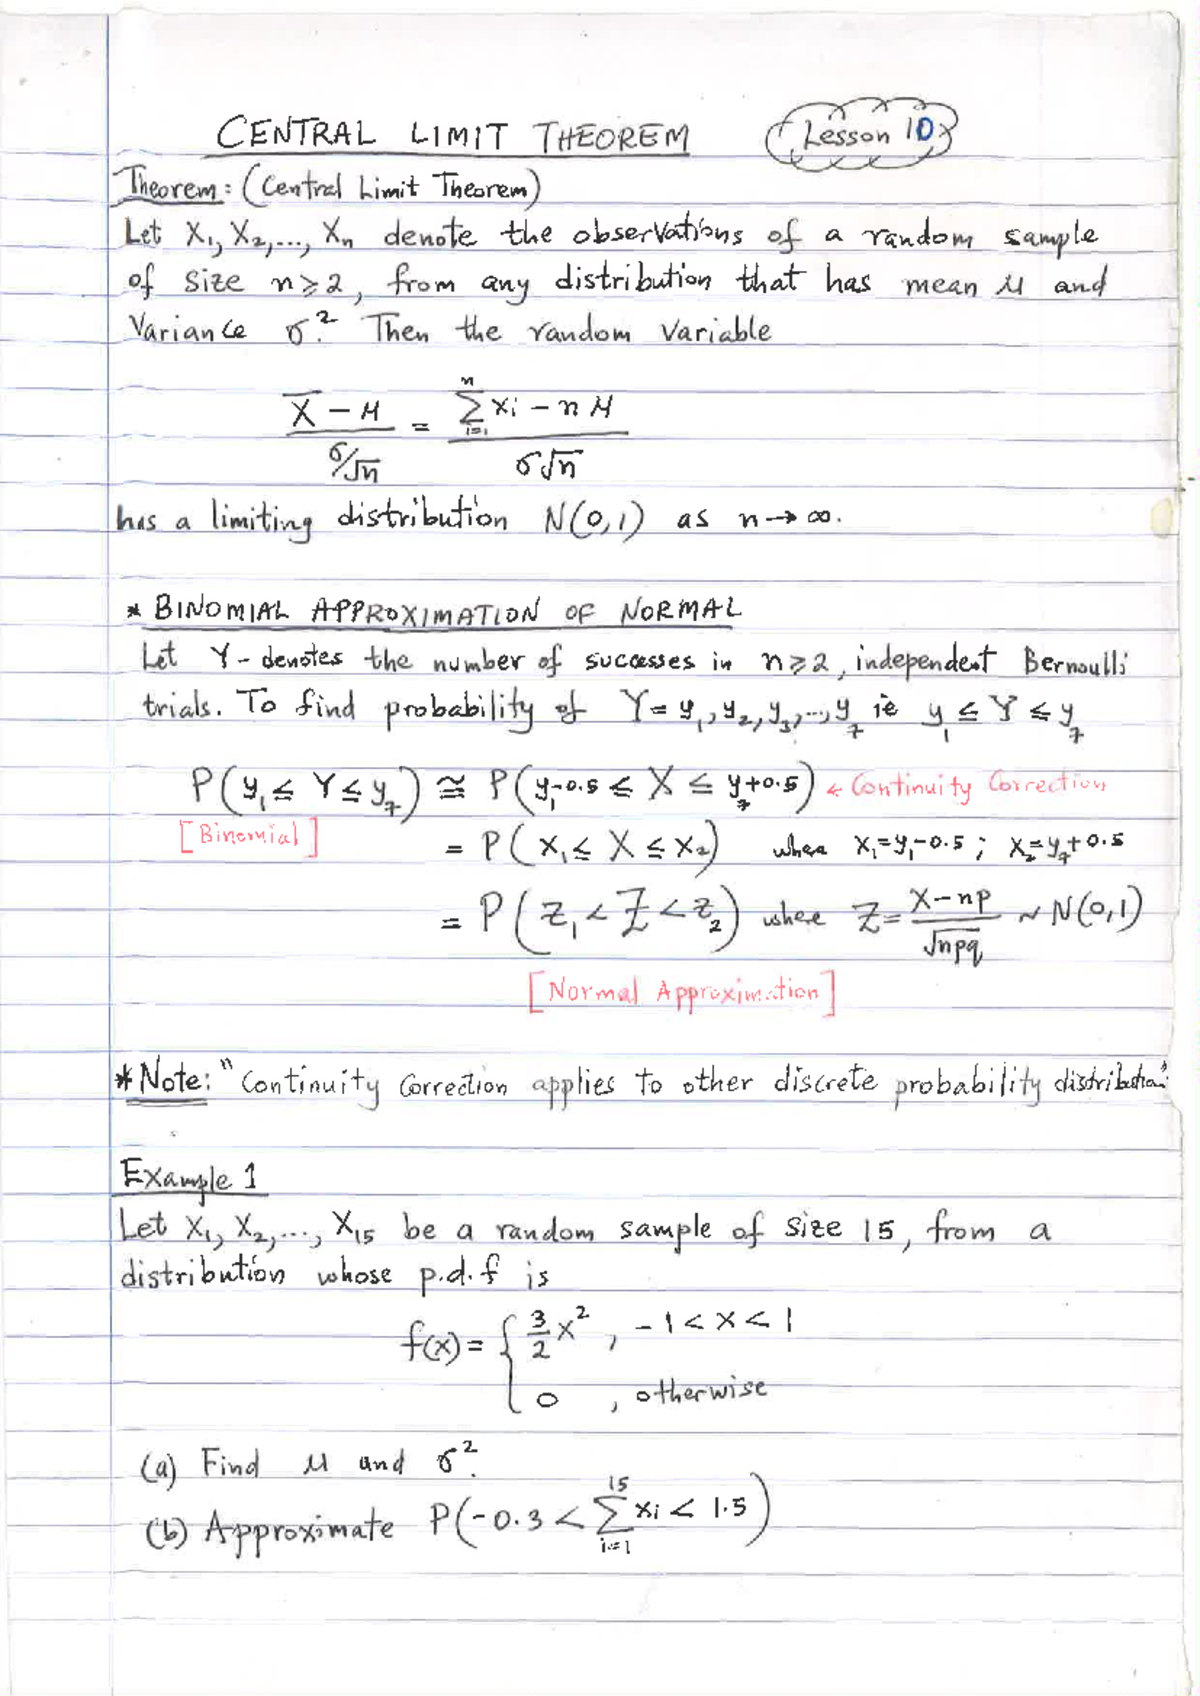 CENTRAL LIMIT THEOREM
Lesson 10
Theorem: (Central Limit Theorem)
Let X₁, X₂,..., Xn denote the observations of a random sample
of size n⩾2, from any distribution that has mean μ and
Variance σ². Then the random variable
(X̄ − μ)/(σ/√n) = (∑ᵢ₌₁ⁿ xi − nμ)/(σ√n)
has a limiting distribution N(0,1) as n→∞.
* BINOMIAL APPROXIMATION OF NORMAL
Let Y- denotes the number of successes in n⩾2, independent Bernoulli
trials. To find probability of Y= y₁, y₂, y₃,..., y₇ ie y₁ ≤ Y ≤ y₇
P(y₁≤ Y≤ y₇) ≅ P(y₁-0.5 ≤ X ≤ y₇+0.5) ← Continuity Correction
[Binomial]
= P(x₁≤ X ≤ x₂) where x₁=y₁-0.5 ; x₂=y₇+0.5
= P(z₁<Z<z₂) where Z= (X-np)/√npq ~ N(0,1)
[Normal Approximation]
* Note: "Continuity Correction applies to other discrete probability distribution"
Example 1
Let X₁, X₂,..., X₁₅ be a random sample of size 15, from a
distribution whose p.d.f is
f(x) = { 3/2 x² , -1<x<1
0 , otherwise
(a) Find μ and σ².
(b) Approximate P(-0.3 < ∑ᵢ₌₁¹⁵ xi < 1.5)